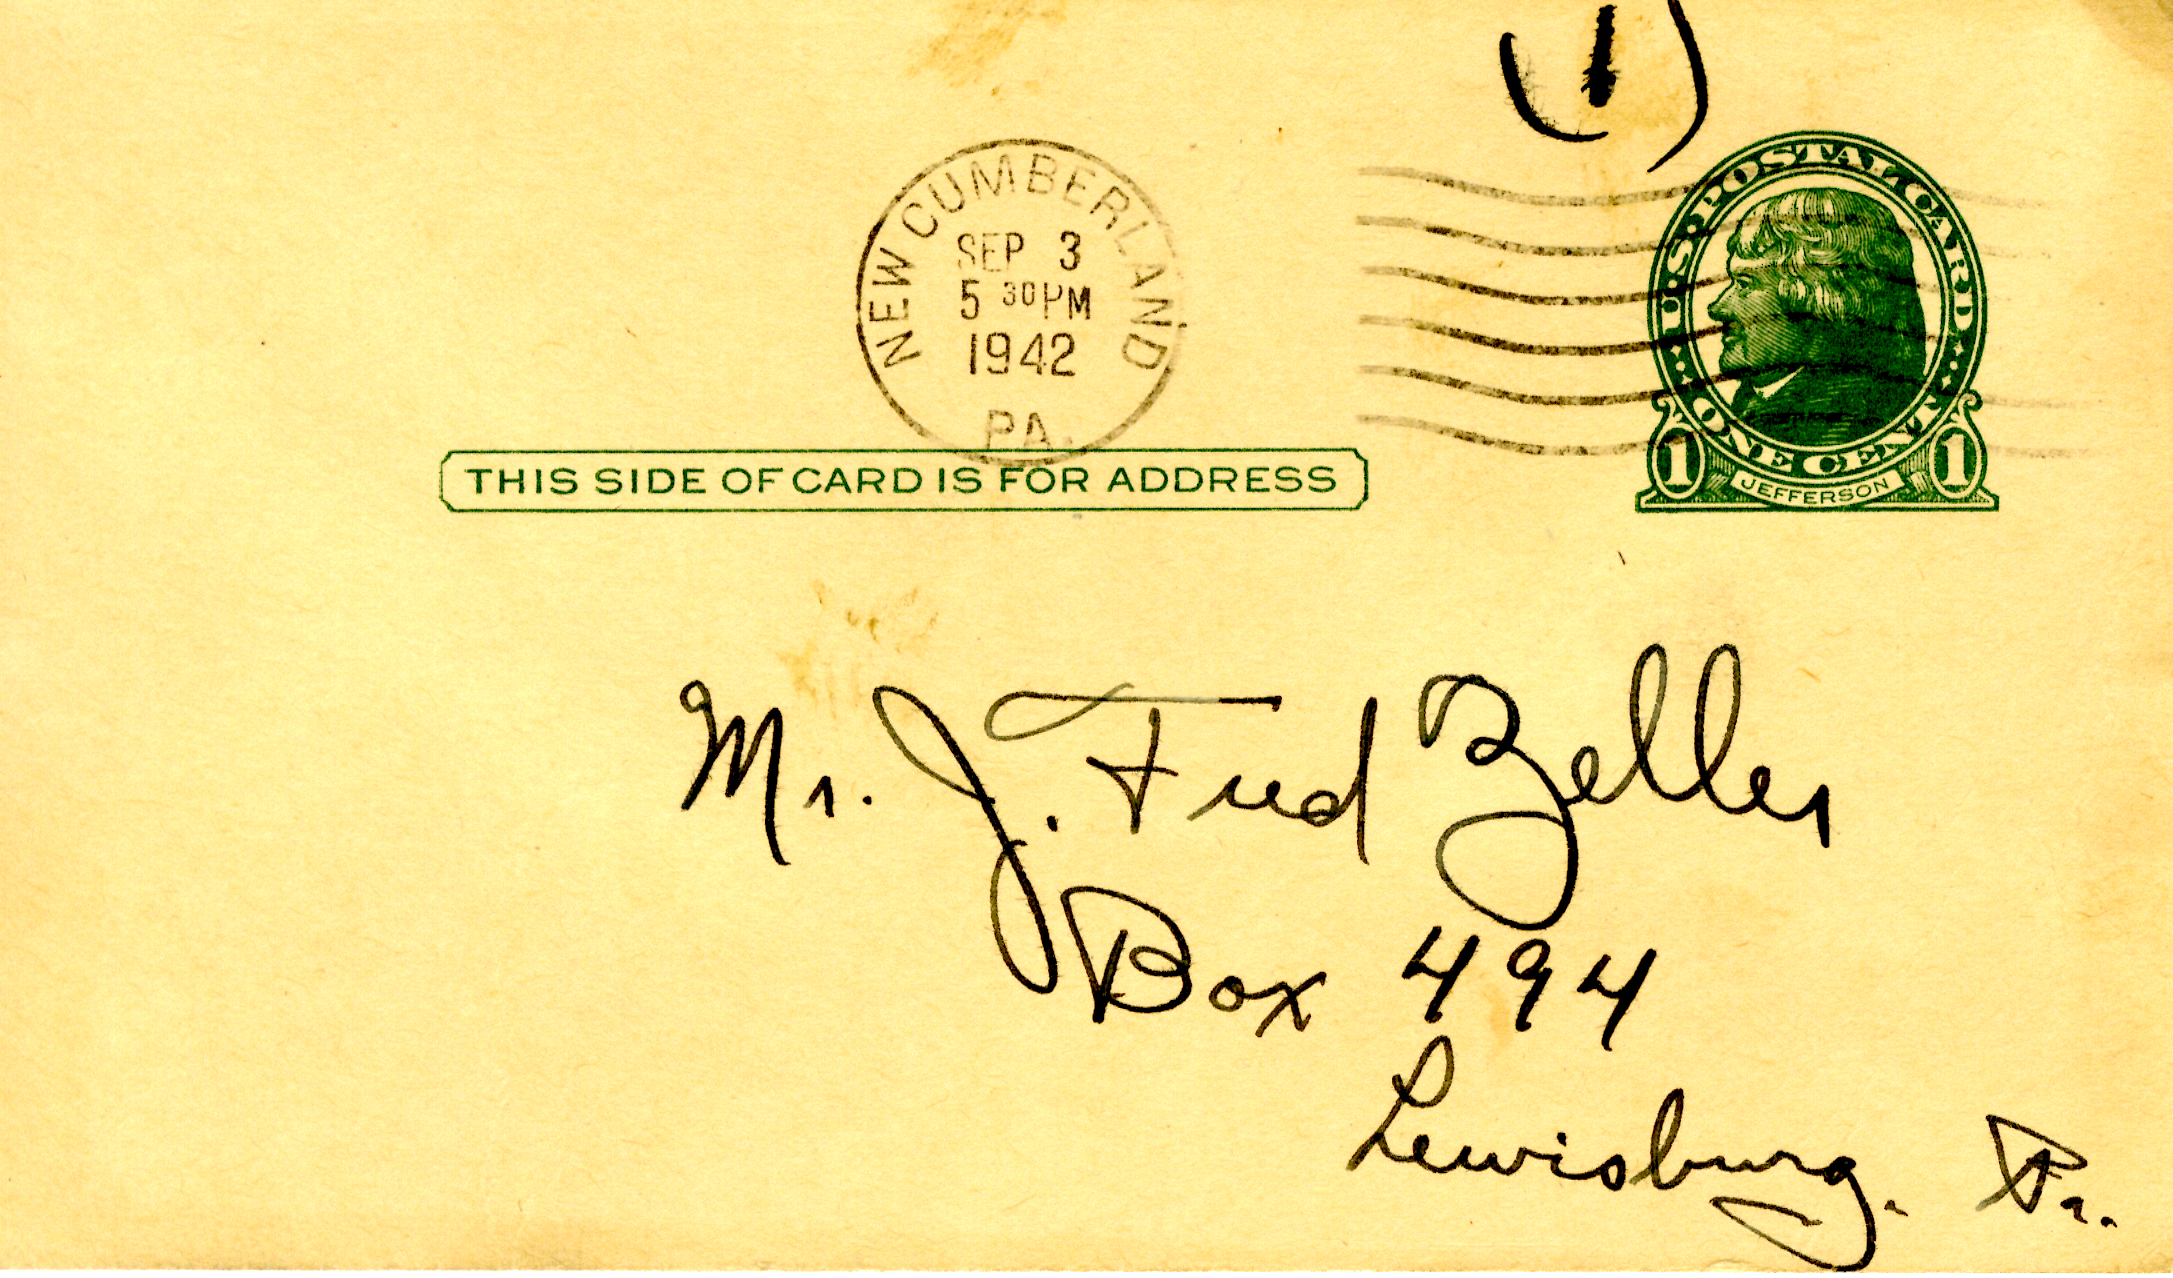 (1)
NEW CUMBERLAND
SEP 3
5 30 PM
1942
PA.
U.S. POSTAL CARD
ONE CENT
1 JEFFERSON 1
THIS SIDE OF CARD IS FOR ADDRESS
Mr. J. Fred Zeller
Box 494
Lewisburg. Pa.